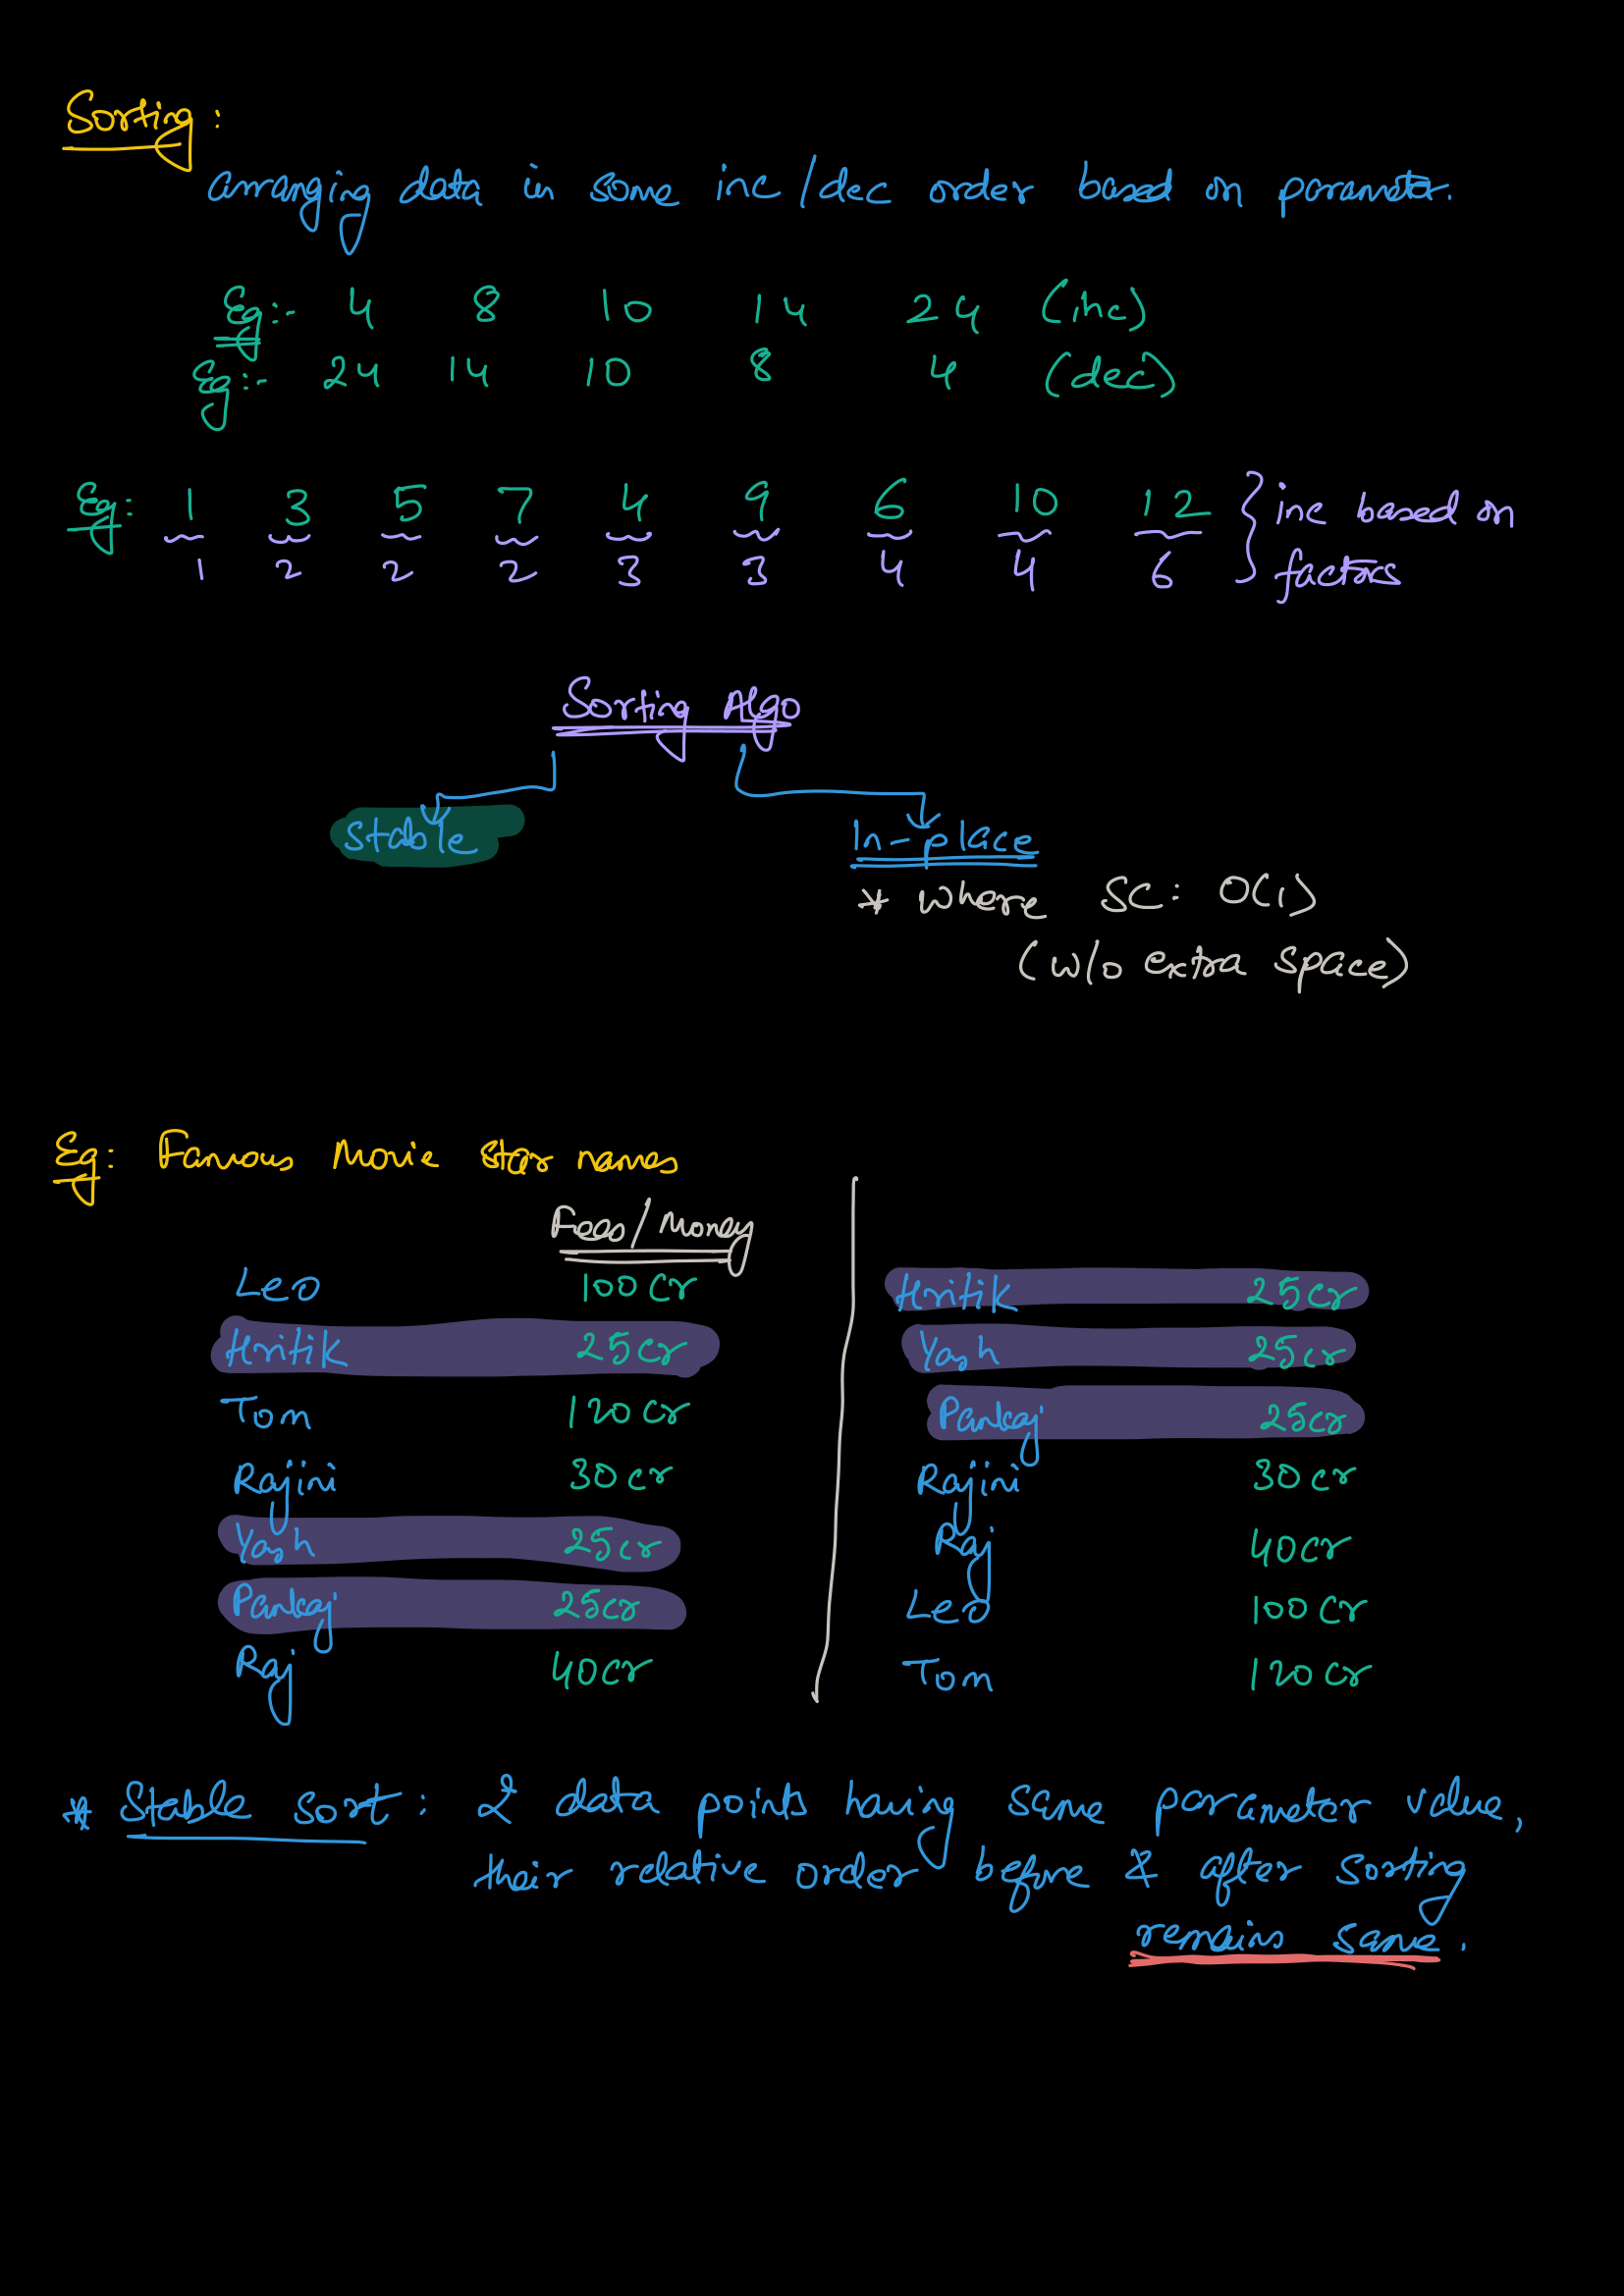 Sorting :
arranging data in some inc/dec order based on parameter.
Eg:- 4 8 10 14 24 (inc)
Eg:- 24 14 10 8 4 (dec)
Eg: 1 3 5 7 4 9 6 10 12 } inc based on
1 2 2 2 3 3 4 4 6 factors
Sorting Algo
Stable In-place
* where SC: O(1)
(w/o extra space)
Eg: Famous Movie Star names
Fees/Money
Leo 100 cr Hritik 25 cr
Hritik 25 cr Yash 25 cr
Tom 120 cr Pankaj 25 cr
Rajini 30 cr Rajini 30 cr
Yash 25 cr Raj 40 cr
Pankaj 25 cr Leo 100 cr
Raj 40 cr Tom 120 cr
* Stable sort : 2 data points having same parameter value,
their relative order before & after sorting
remains same.